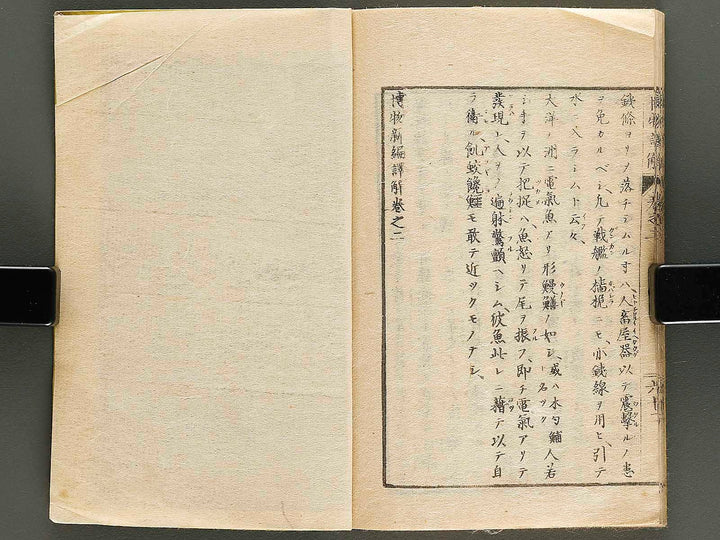 鐵條ヨリヲ落チシムル寸ハ人畜屋器以テ震擊ルノ患
ヲ免カルベシ凡テ戰艦ノ檣桅ニモ亦鐵線ヲ用ヒ引テ
水ニ入ラシムト云々
大洋ノ洲ニ電氣魚アリ形鰻鱔ノ如シ或ハ木勺鯆人若
シ手ヲ以テ把捉ハ魚怒リテ尾ヲ振フ即チ電氣アリテ
發現レ人ヲシテ遍身驚顫ヘシム彼魚此レニ藉テ以テ自
ラ衛ル飢蛟饞鱷モ敢テ近ツクモノナシ
博物新編譯解卷之二